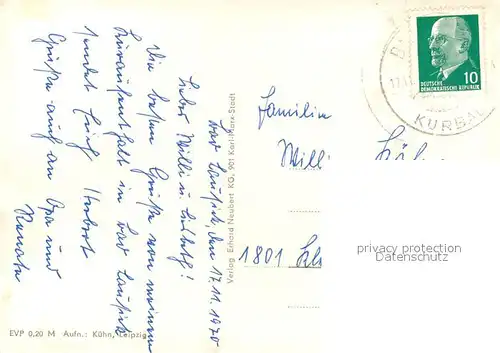 Bad Lausick, den 17.11.1970
Lieber Willi u. Liesbeth!
Die besten Grüße von meinem
Kuraufenthalt in Bad Lausick
sendet Euch Herbert
Grüße auch an Opa und
Renate
EVP 0,20 M Aufn.: Kühn, Leipzig
Verlag Erhard Neubert KG, 901 Karl-Marx-Stadt
Familie
Willi
1801
10
DEUTSCHE
DEMOKRATISCHE REPUBLIK
KURBAD
privacy protection
Datenschutz